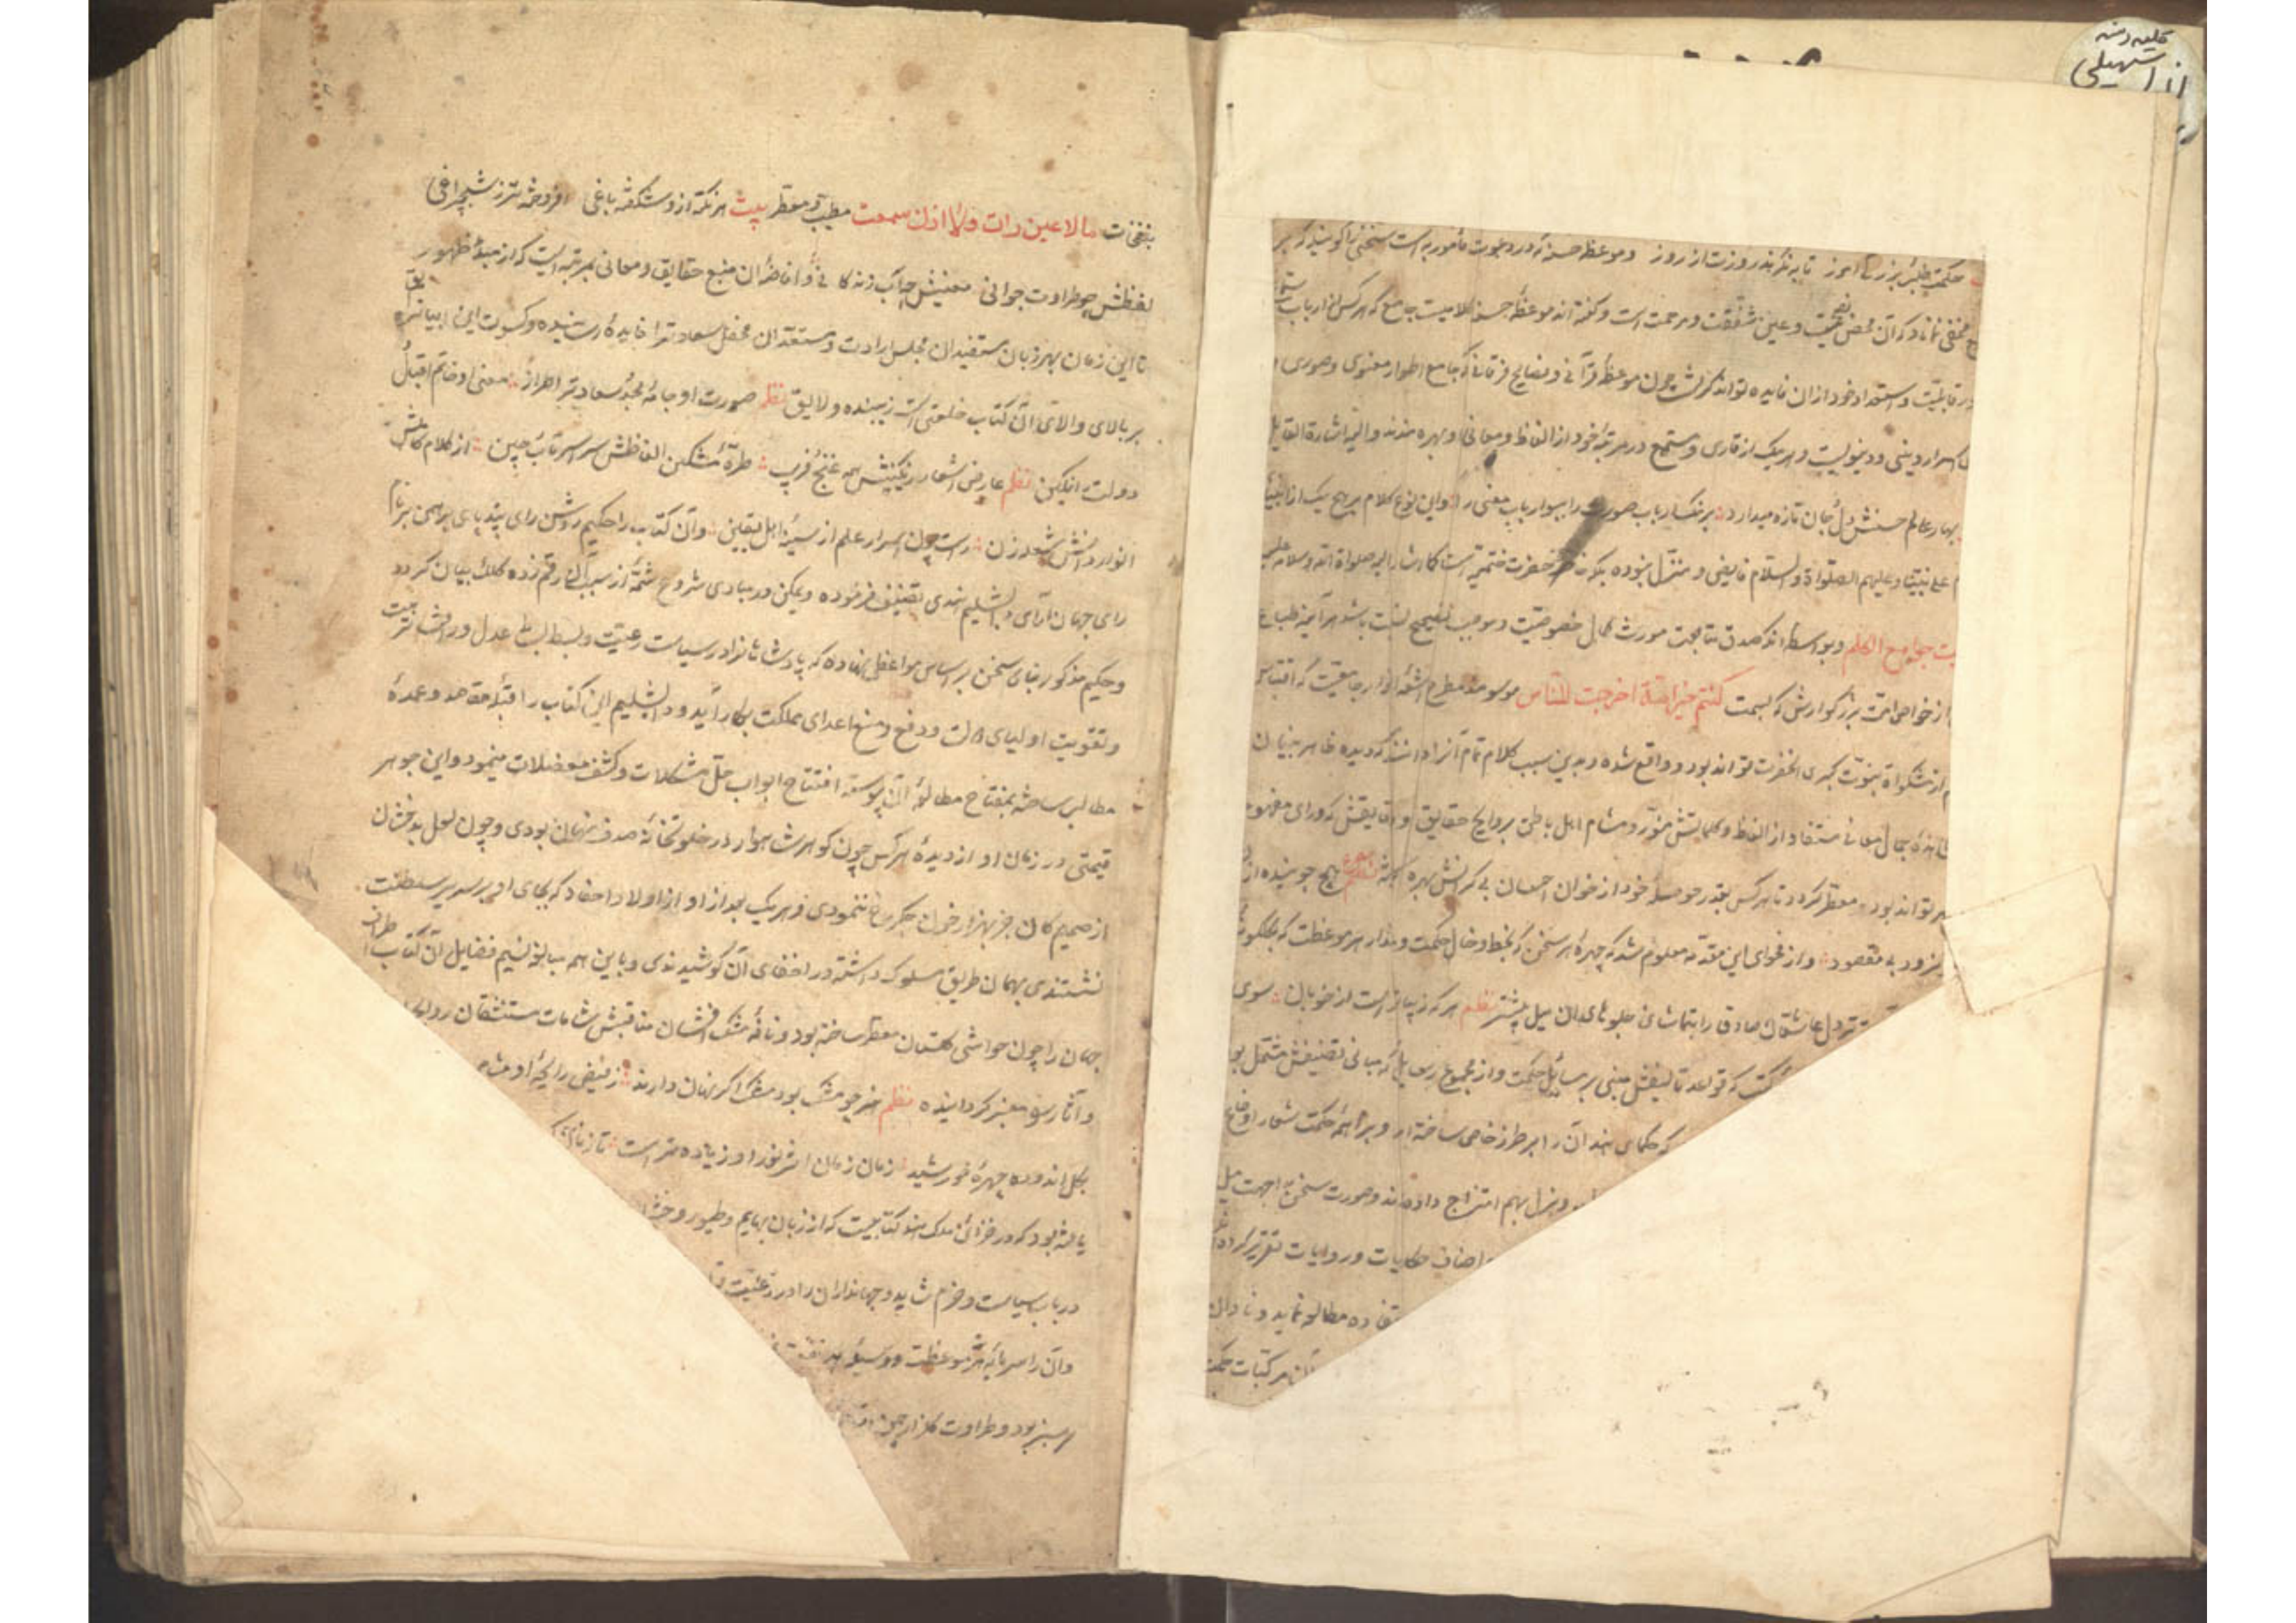 کلیله دمنه
انوار سهیلی
حکمت طلب و بزرگی آموز تا به نگرند روزت از روز وموعظه حسنه که در دعوت مأمور به است سخنی را گویند که بر
مخفی نماند که آن محض نصیحت وعین شفقت ومرحمت است وگفته اند موعظه حسنه کلامیست جامع که هرکس از ارباب
قابلیت واستعداد خود از ان فایده تواند گرفت چون موعظه قرآنی ونصایح فرقانی که جامع اطوار معنوی وصوری
اسرار دینی ودنیویست وهریک از قاری ومستمع در مرتبه خود از الفاظ ومعانی او بهره مندند والیه اشارة القایل
بهار عالم حسنش دل وجان تازه میدارد برنگ ارباب صورت را ببو ارباب معنی را واین نوع کلام بر هیچ یک از انبیا
علی نبینا وعلیهم الصلواة والسلام فایض ومنزل نبوده بلکه خاصه حضرت ختمیت است کما اشار الیه صلواة الله وسلامه علیه
جوامع الکلم وبواسطه انکه صدق متابعت مورث کمال خصوصیت وموجب تصحیح نسبت باشد هرآینه طباع
از خواص امت بزرگوارش که بسمت کنتم خیر امة اخرجت للناس موسومند مطرح اشعه انوار جامعیت که اقتباس
از مشکواة نبوت کبری آنحضرت تواند بود واقع شده وبدین سبب کلام تمام آنرا دانند که دیده ظاهر بینان
بمشاهده جمال معانی مستفاد از الفاظ وکلماتش منور ومشام اهل باطن بروایح حقایق ودقایقش که ورای مفهوم
تواند بود معطر گردد تا هرکس بقدر حوصله خود از خوان احسان بی کرانش بهره گیرد مصرع هیچ جوینده از
نرود بی مقصود واز فحوای این مقدمه معلوم شد که چهره هر سخن که بخط وخال حکمت وعذار هر موعظت که بگلگونه
تر دل عاشقان صادق را بتماشای جلوه های ان میل بیشتر نظم هر که زیباتر است از خوبان سوی
کتب که قواعد تالیفش مبنی بر مسایل حکمت واز مجموع رسایل که مبانی تصنیفش مشتمل بو
که حکمای هند آن را بر طرز خاص ساخته اند وبراهمه حکمت شعار اوضاع
وهزل بهم امتزاج داده اند وصورت سخن را جهت میل
اصناف حکایات وروایات تقریر کرده
مطالعه نماید ونادان
بنفحات ما لا عین رات ولا اذن سمعت مطیب ومعطر بیت هر نکته ازو شکفته باغی افروخته تر ز شبچراغی
لفظش چو طراوت جوانی معنیش چو آب زندگانی وافاضه ان منبع حقایق ومعانی بمرتبه ایست که از مبداء ظهور
تا این زمان بهر زبان مستفیدان مجلس ارادت ومستعدان محفل سعادترا فایده رسانیده وکسوت این ابیات که
بر بالای والای آن کتاب خلعتی است زیبنده ولایق نظم صورت او جامه مجد وسعادترا طراز معنی او خاتم اقبال
دولت را نگین نظم عارض اشعار رنگینش همه غنج وفریب طره مشکین الفاظش سراسر تاب وچین از کلام کاملش
انوار دانش شعله زن راست چون اسرار علم از سینه اهل یقین وآن کتاب را حکیم روشن رای بیدپای برهمن بر نام
رای جهان آرای دابشلیم هندی تصنیف فرموده ویمکن در مبادی شروع شمه از سبب تالیف رقم زده کلک بیان گردد
وحکیم مذکور بنای سخن بر اساس مواعظ نهاده که پادشاهانرا در سیاست رعیت وبسط بساط عدل ورافت تربیت
وتقویت اولیای دولت ودفع ومنع اعدای مملکت بکار آید ودابشلیم این کتاب را قبله مقاصد وعمده
مطالب ساخته بمفتاح مطالعه آن پیوسته افتتاح ابواب حل مشکلات وکشف معضلات مینمود واین جوهر
قیمتی در زمان او از دیده هرکس چون گوهر شاهوار در خلوتخانه صدف پنهان بودی وچون لعل بدخشان
از صمیم کان جز بهزار خون جگر رخ ننمودی وهریک بعد از او از اولاد واحفاد که بجای او بر سریر سلطنت
نشستندی بهمان طریق مسلوک داشته در اخفای آن کوشیدندی وباین همه مبالغه نسیم فضایل آن کتاب اطراف
جهان را چون حواشی گلستان معطر ساخته بود ونافه مشک افشان مناقبش مشامات مستنشقان روایح
وآثار را معنبر گردانیده نظم هنر چو مشک بود مشک اگر نهان دارند ز فیض رایحه او مشام
بگل اندوده چهره خورشید زمان زمان اثر نور او زیاده تر است تا زمان
یافته بود که در خزائن ملوک هند کتابیست که از زبان بهایم وطیور وحش
در باب سیاست وحزم شاید وجهانداران را در رعیت
وآن را سرمایه هر موعظت ووسیله هر منفعت
سرسبز بود وطراوت گلزار چمن